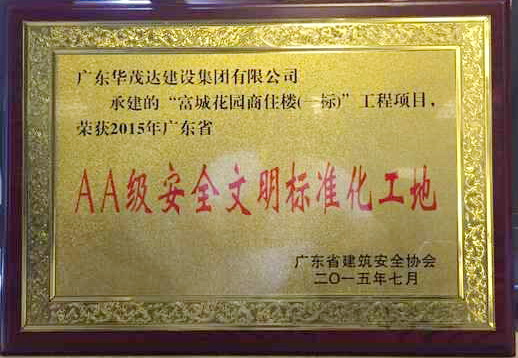 广东华茂达建设集团有限公司
承建的“富城花园商住楼(一标)”工程项目，
荣获2015年广东省
AA级安全文明标准化工地
广东省建筑安全协会
二〇一五年七月